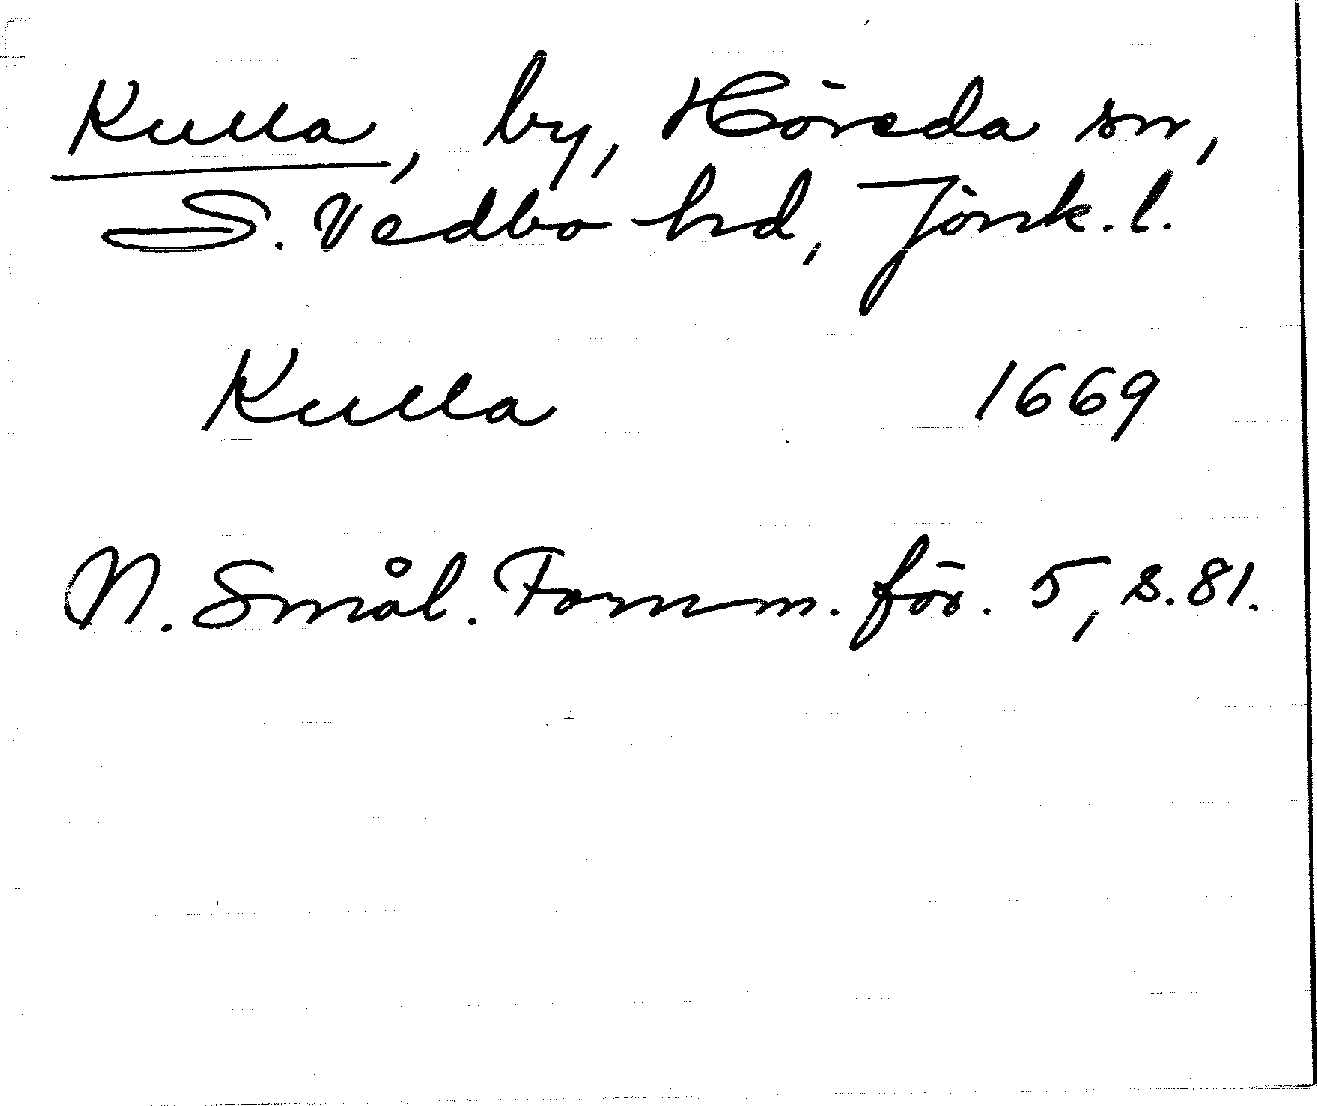 Kulla, by, Höreda sn,
S. Vedbo hd, Jönk. l.
Kulla 1669
N. Smål. Fornm. för. 5, s. 81.